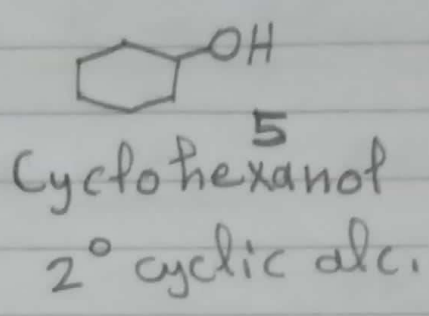 OH
5
Cyclohexanol
2° cyclic alc.